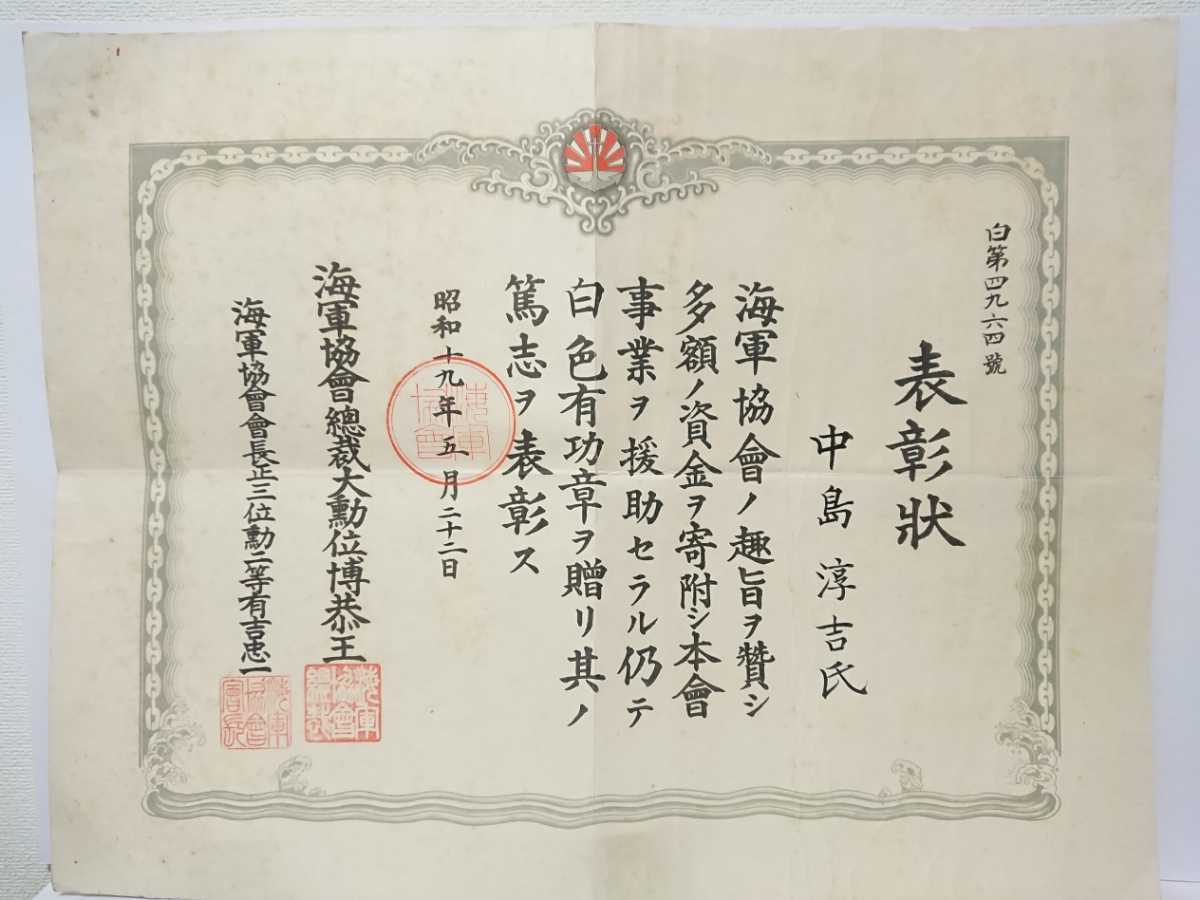 白第四九六四號
表彰狀
中島淳吉氏
海軍協會ノ趣旨ヲ贊シ
多額ノ資金ヲ寄附シ本會
事業ヲ援助セラル仍テ
白色有功章ヲ贈リ其ノ
篤志ヲ表彰ス
昭和十九年五月二十二日
海軍協會
海軍協會總裁大勳位博恭王
海軍協會總裁
海軍協會會長正三位勳二等有吉忠一
海軍協會會長